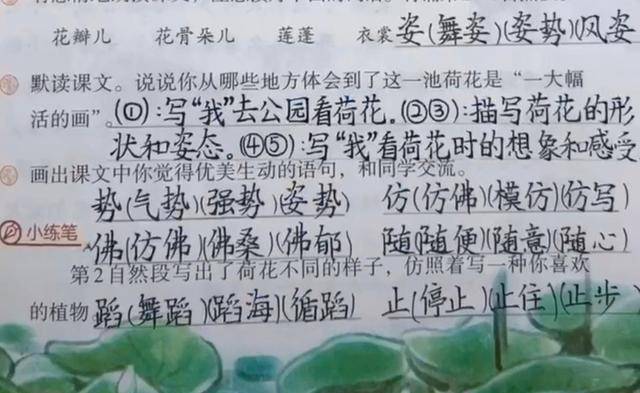 花瓣儿 花骨朵儿 莲蓬 衣裳 姿(舞姿)(姿势)(风姿
默读课文。说说你从哪些地方体会到了这一池荷花是“一大幅
活的画”。(①):写“我”去公园看荷花.(②③):描写荷花的形
状和姿态。(④⑤):写“我”看荷花时的想象和感受
画出课文中你觉得优美生动的语句,和同学交流。
势(气势)(强势)(姿势) 仿(仿佛)(模仿)(仿写)
小练笔 佛(仿佛)(佛桑)(佛郁) 随(随便)(随意)(随心)
第2自然段写出了荷花不同的样子,仿照着写一种你喜欢
的植物 蹈(舞蹈)(蹈海)(循蹈) 止(停止)(止住)(止步